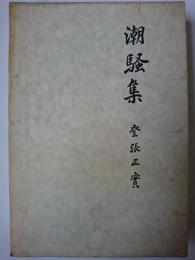 潮騒集
登張正實